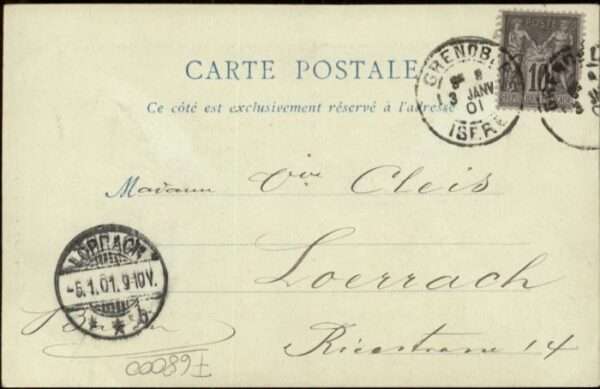 POSTE
10
GRENOBLE
8
3 JANV
01
ISERE
CARTE POSTALE
Ce côté est exclusivement réservé à l'adresse
Madame Vve Cleis
LÖRRACH
-5.1.01.9-10V.
* * b
Loerrach
14